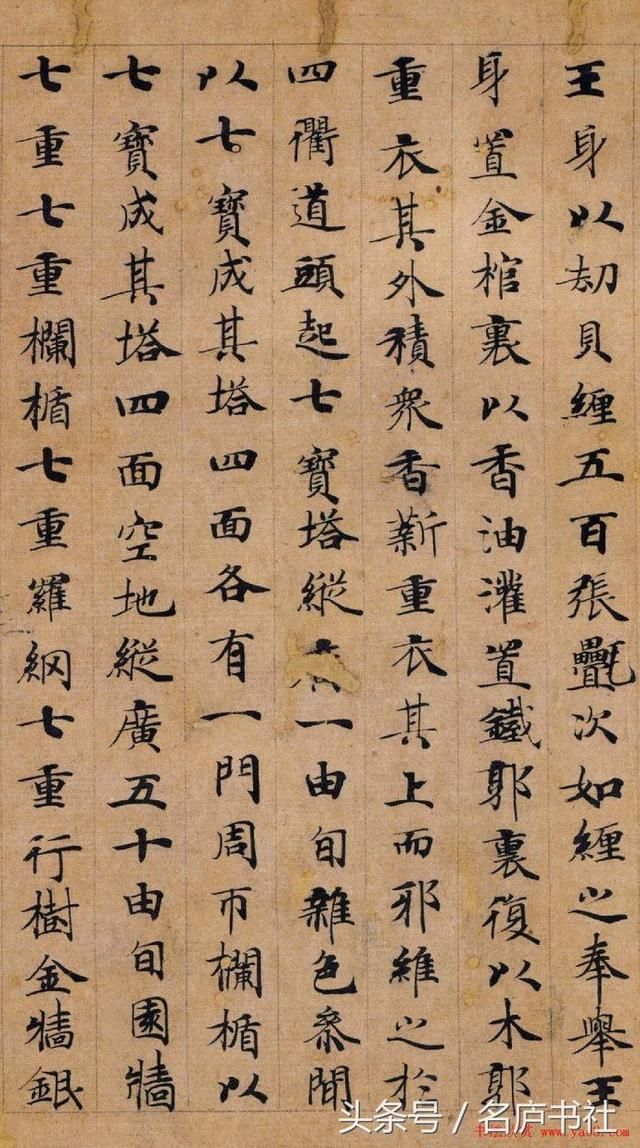 王身以劫貝纏五百張氎次如纏之奉舉王
身置金棺裏以香油灌置鐵郭裏復以木郭
重衣其外積衆香薪重衣其上而耶維之於
四衢道頭起七寶塔縱廣一由旬雜色叅間
以七寶成其塔四面各有一門周帀欄楯以
七寶成其塔四面空地縱廣五十由旬園牆
七重七重欄楯七重羅網七重行樹金牆銀
头条号／名庐书社
www.yac8.com